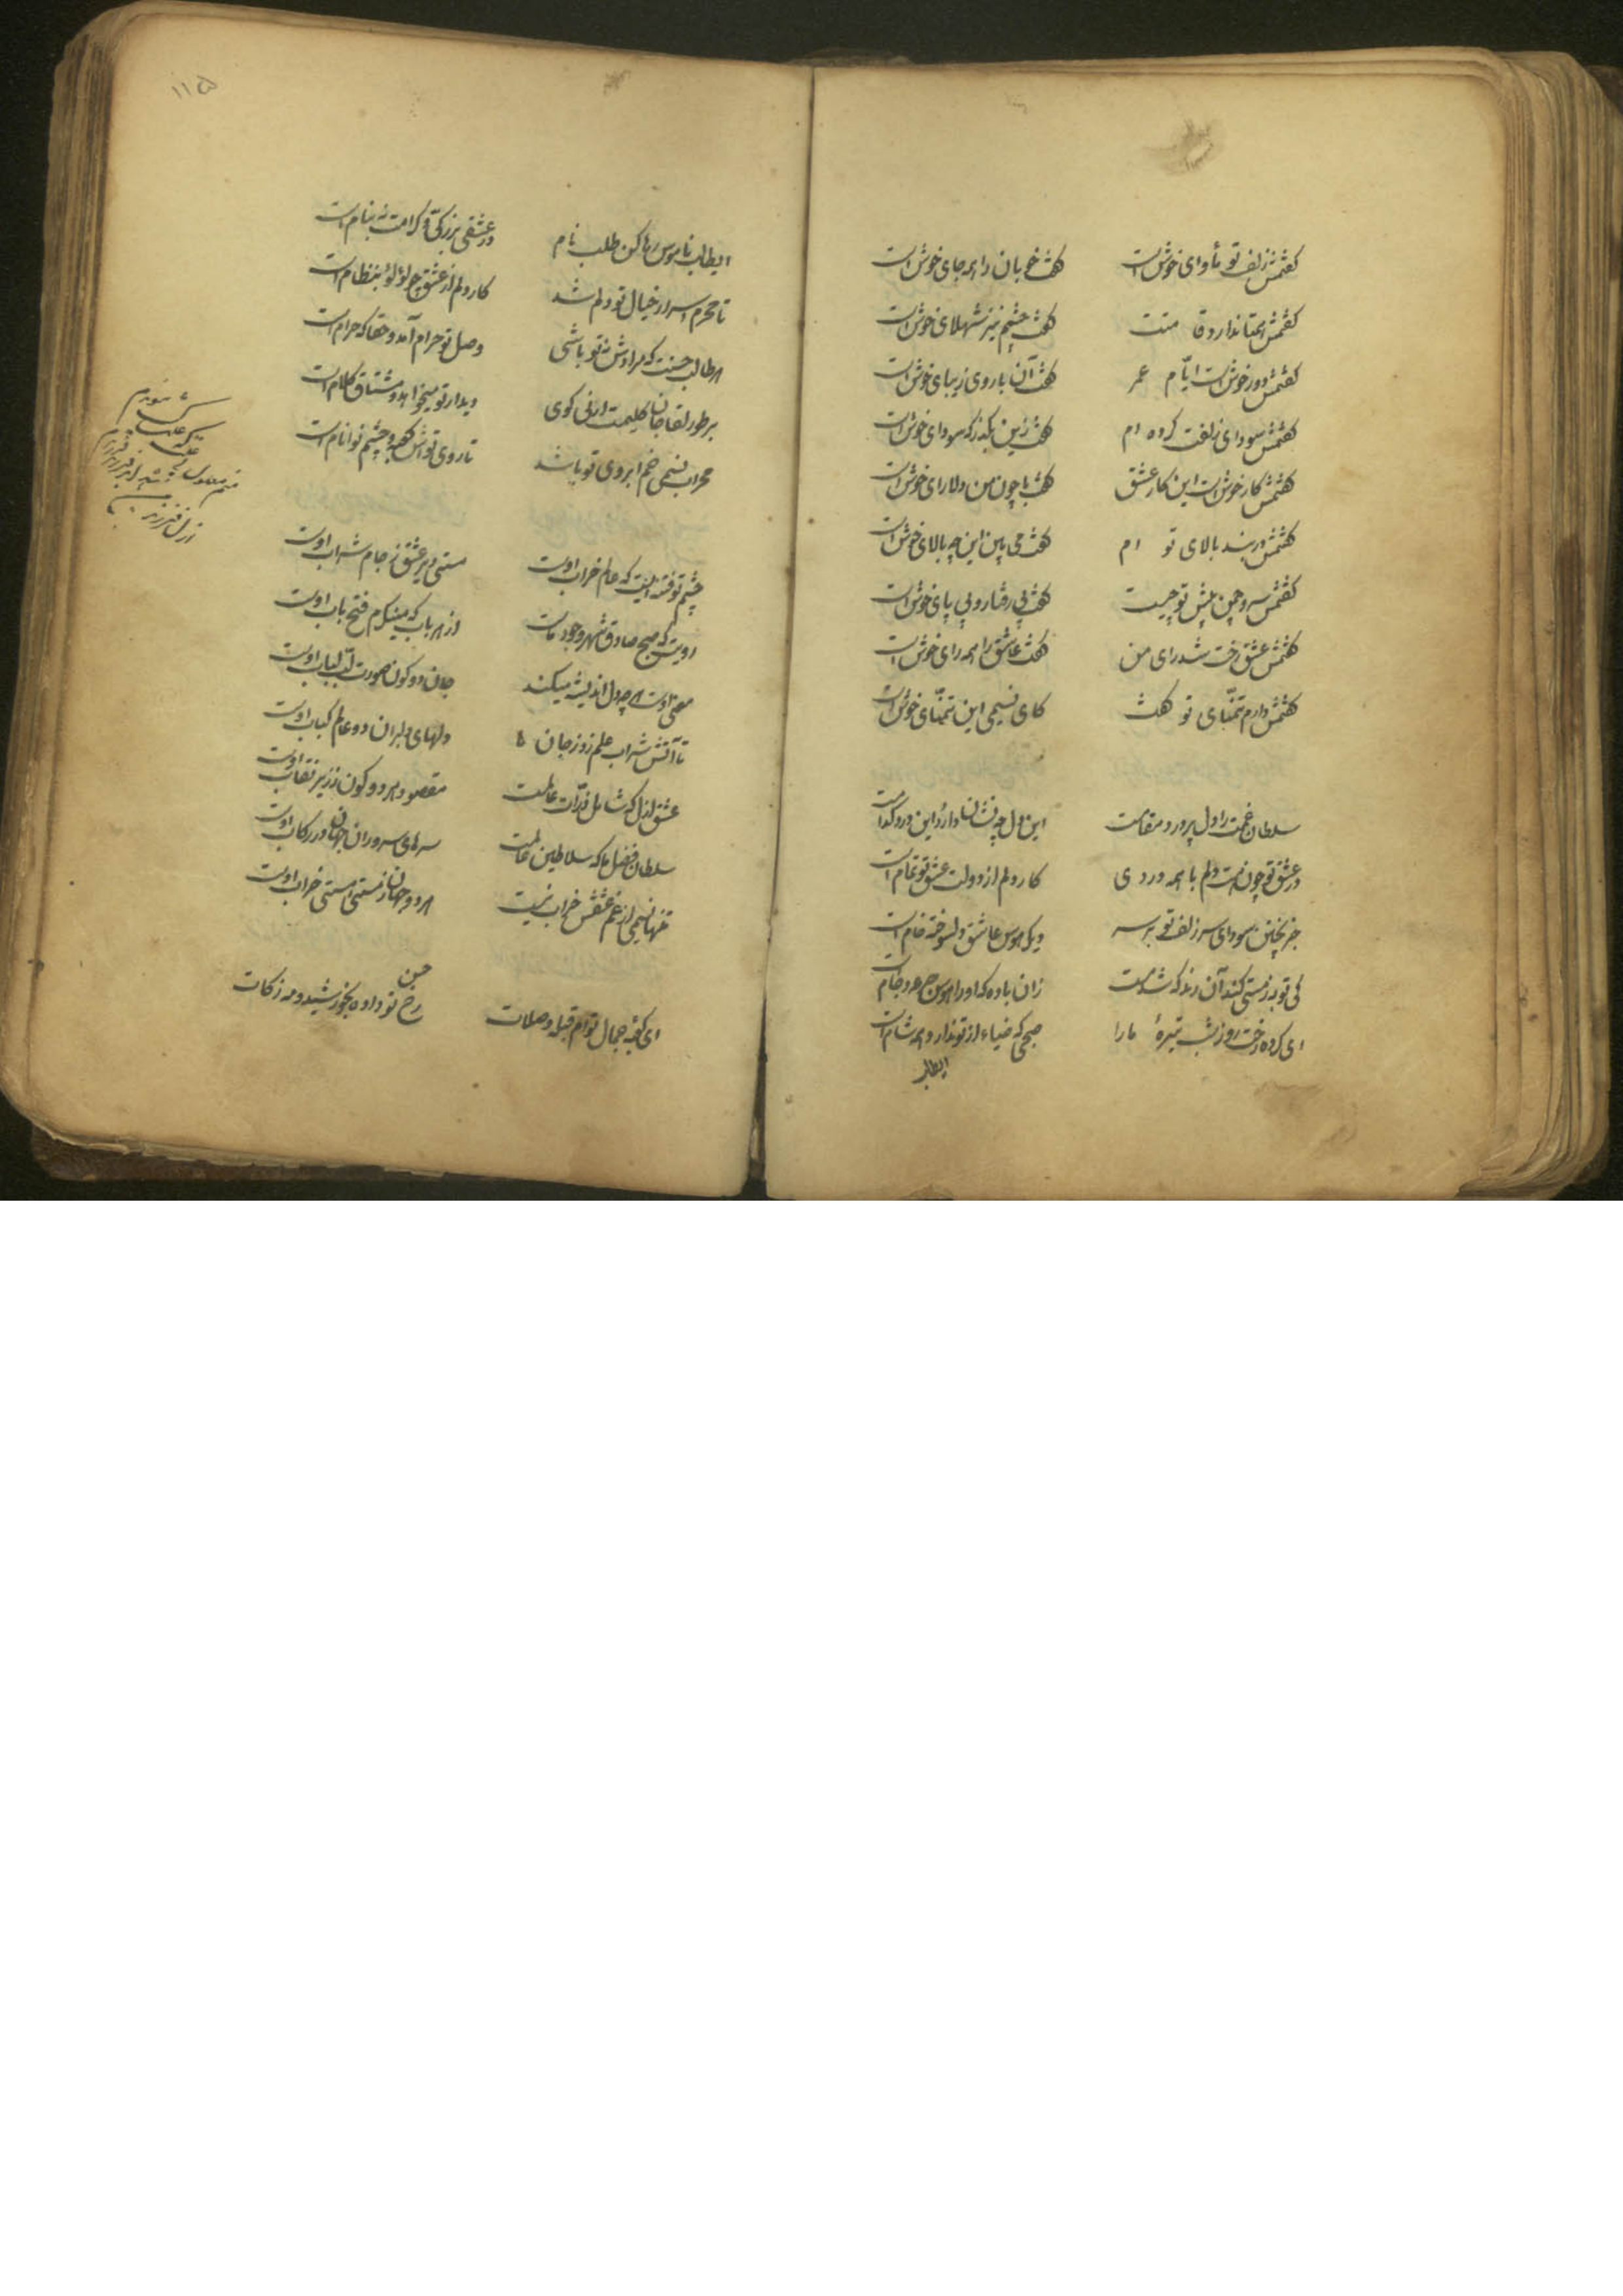 گفتمش زلف تو مأوای خوش است گفت خوبان را همه جای خوش است
گفتمش همتا ندارد قامتت گفت چشمم نیز شهلای خوش است
گفتمش دور خوش است ایّام عمر گفت آن با روی زیبای خوش است
گفتمش سودای زلفت کرده ام گفت زین بگذر که سودای خوش است
گفتمش کار خوش است این کار عشق گفت با چون من دلارای خوش است
گفتمش در بند بالای تو ام گفت می بین این چه بالای خوش است
گفتمش سرو چمن پیش تو چیست گفت بی رفتار و بی پای خوش است
گفتمش عشق رخت شد رای من گفت عاشق را همه رای خوش است
گفتمش دارم تمنّای تو گفت کای نسیمی این تمنّای خوش است
سلطان غمت را دل پر درد مقامست این دل چه نشان دارد و این درد کدامست
در عشق تو چون است دلم با همه دردی کار دلم از دولت عشق تو تمام است
جز پختن سودای سر زلف تو بر سر دیگ هوس عاشق دلسوخته خام است
کی توبه ز مستی کند آن رند که شد مست زان باده که او را هوس جرعه و جام است
ای کرده رخت روز شب تیرهٔ ما را صبحی که ضیاء از تو ندارد همه شام است
ایطالب
۱۱۵
ایطالب ناموس رها کن طلب نام در عشق بزرگی و کرامت نه بنام است
تا محرم اسرار خیال تو دلم شد کار دلم از عشق چو لؤلؤ بنظام است
هر طالب جنت که مرادش نه تو باشی وصل تو حرام آمد و حقا که حرام است
بر طور لقا جان کلیمت ارنی گوی دیدار تو میخواهد و مشتاق کلام است
محراب نسیمی خم ابروی تو باشد تا روی تواش کعبه و چشم تو امام است
چشم تو فتنه ایست که عالم خراب اوست مستی دیر عشق ز جام شراب اوست
رویش که صبح صادق شهر وجود ماست از هر باب که مینگرم فتح باب اوست
معنی اوست هر چه دل اندیشه میکند جان دو کون صورت لبّ لباب اوست
تا آتش شراب علم زد ز جان ما دلهای دلبران دو عالم کباب اوست
عشق ازل که شامل ذرّات عالمست مقصود هر دو کون زیر نقاب اوست
سلطان فضل ما که سلاطین عالمست سرهای سروران جهان در رکاب اوست
تنها نسیمی از غم عشقش خراب نیست هر دو جهان ز مستی خراب اوست
ای کعبه جمال توام قبله صلات حسن رخ تو داده بخورشید و مه زکات